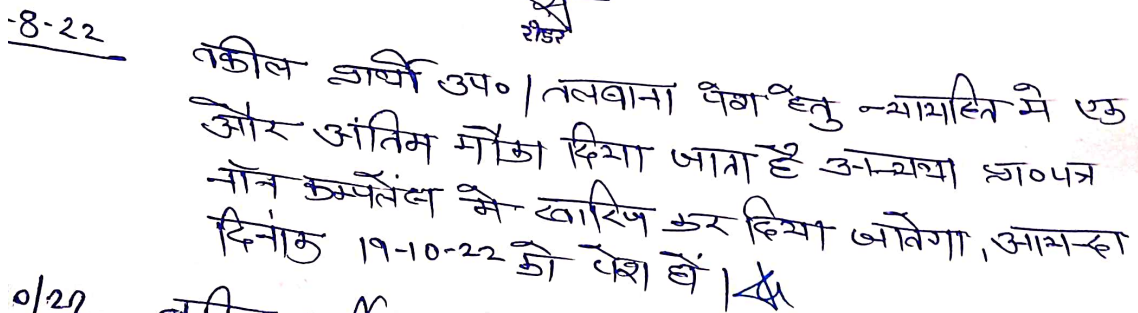 रीडर
-8-22
वकील प्रार्थी उप० । तलवाना पेश हेतु न्यायहित मे एक
और अंतिम मौका दिया जाता है अन्यथा प्रा०पत्र
नॉन कम्पलेंस मे खारिज कर दिया जावेगा, आयन्दा
दिनांक 19-10-22 को पेश हों ।
0/22